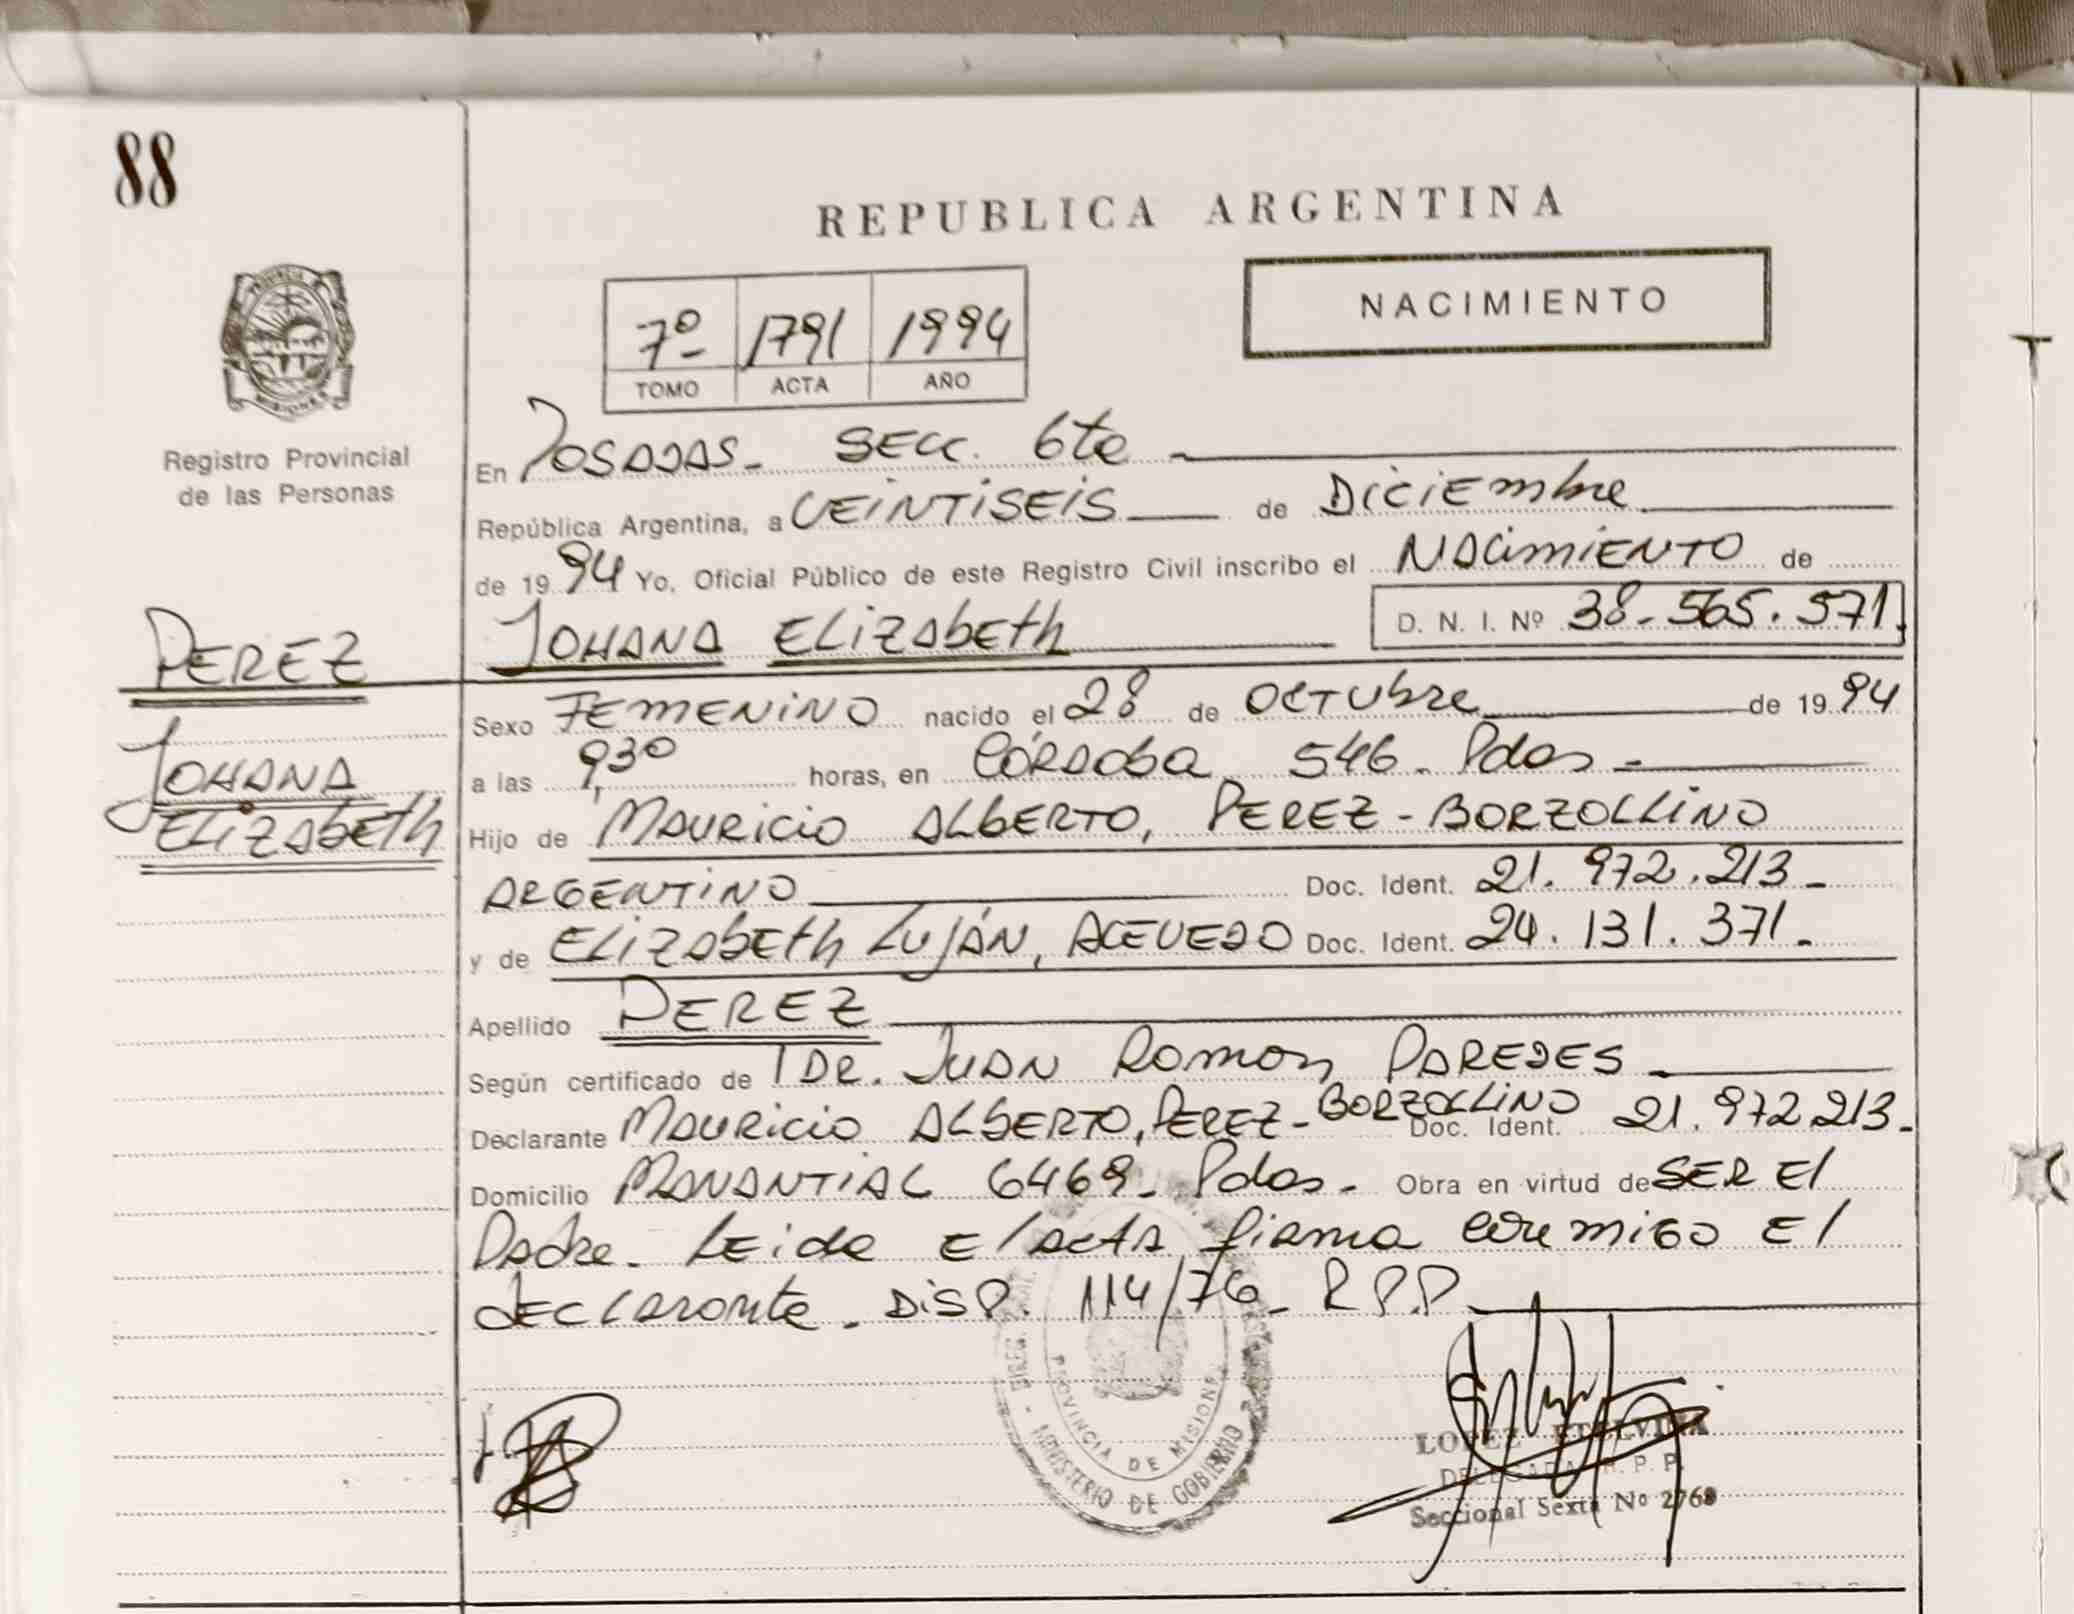 88
REPUBLICA ARGENTINA
NACIMIENTO
7º 1791 1994
TOMO ACTA AÑO
Registro Provincial
de las Personas
PEREZ
JOHANA
ELIZAbEth
En POSADAS- SECC. 6ta
República Argentina, a VEINTISEIS de DICIEmbre
de 1994 Yo, Oficial Público de este Registro Civil inscribo el NACimiENTO de
JOHANA ELIZAbEth D. N. I. Nº 38-565.571.
Sexo FEMENINO nacido el 28 de OCTUbre de 1994
a las 9,30 horas, en CÓRDOba 546- Pdas-
Hijo de MAURICIO ALbERTO, PEREZ-BORZOLLINO
ARGENTINO Doc. Ident. 21.972.213-
y de ELIZAbEth LUJÁN, ACEVEDO Doc. Ident. 24.131.371.-
Apellido PEREZ
Según certificado de DR. JUAN RAmon PAREDES
Declarante MAURICIO ALbERTO, PEREZ-BORZOLLINO Doc. Ident. 21.972.213.-
Domicilio MANANTIAL 6469- Pdas- Obra en virtud de SER El
PAdre. LEida El ActA firma conmigo El
dEclarante. DISP. 114/76- R.P.P
PROVINCIA DE MISIONES
MINISTERIO DE GOBIERNO
LOPEZ ETELVINA
DELEGADA R. P. P.
Seccional Sexta Nº 2768